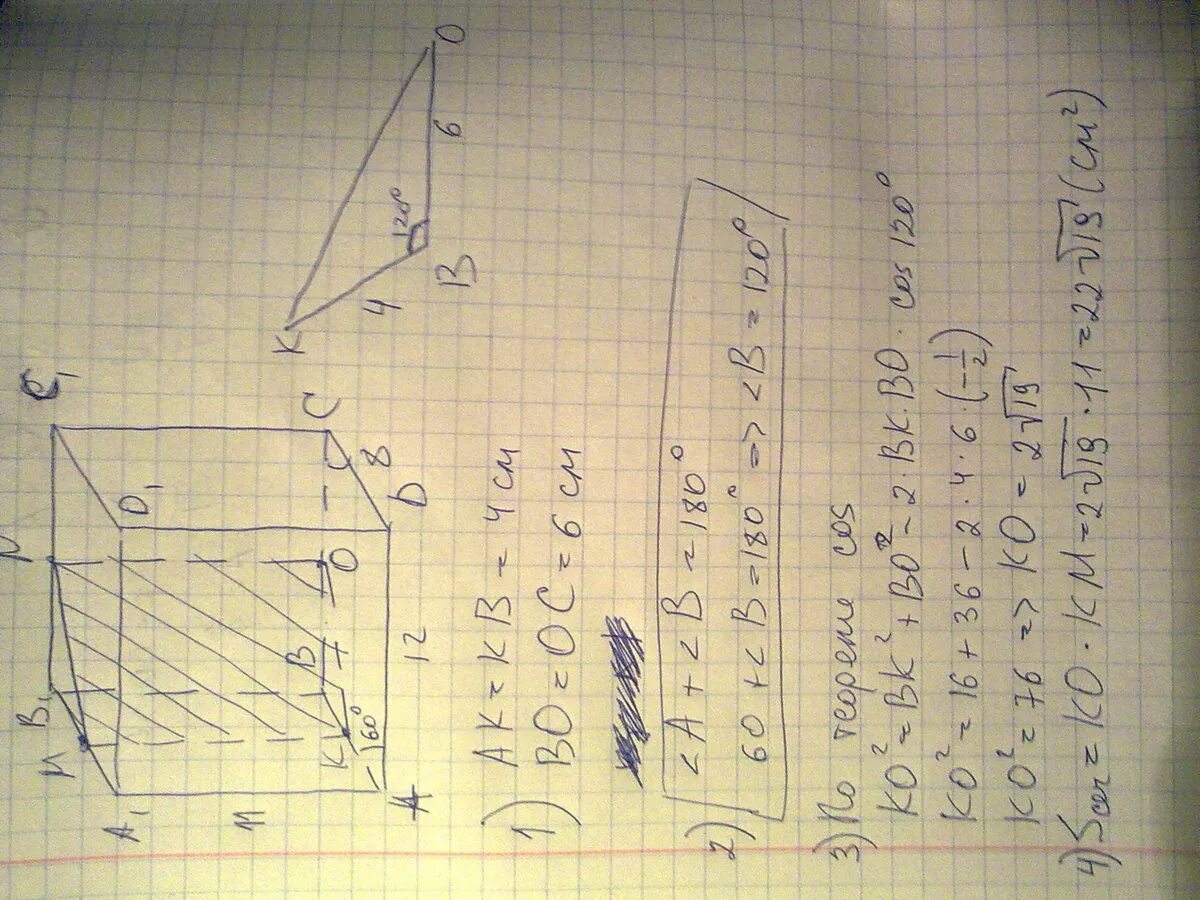 C₁
N
B₁
M
A₁
D₁
11
C
8
D
O
B
K
60°
A
12
K
4
120°
B
6
O
1) AK = KB = 4 см
BO = OC = 6 см
2) <A + <B = 180°
60 + <B = 180° => <B = 120°
3) По теореме cos
KO² = BK² + BO² - 2 · BK · BO · cos 120°
KO² = 16 + 36 - 2 · 4 · 6 · (-1/2)
KO² = 76 => KO = 2√19
4) Sсеч = KO · KM = 2√19 · 11 = 22√19 (см²)